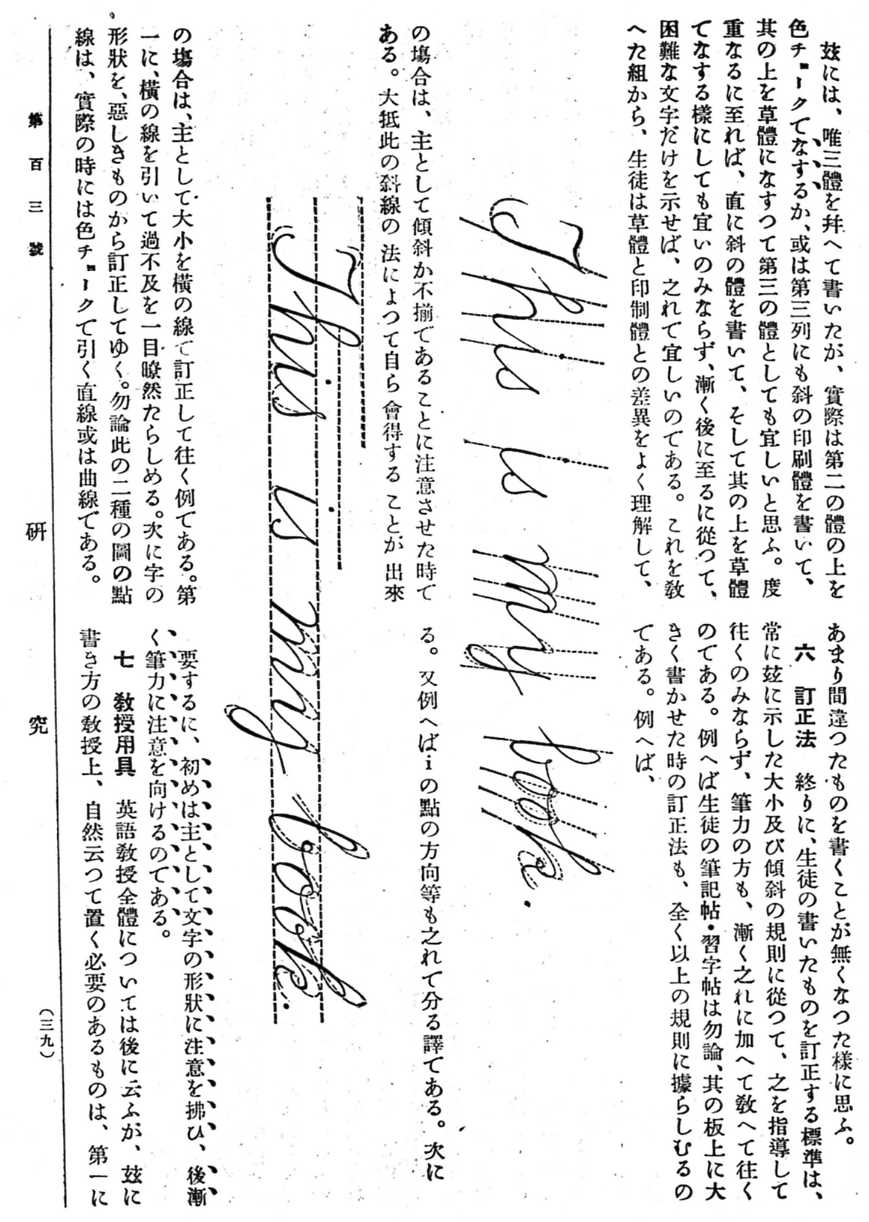 玆には、唯三體を幷へて書いたが、實際は第二の體の上を
色チョークでなするか、或は第三列にも斜の印刷體を書いて、
其の上を草體になすつて第三の體としても宜しいと思ふ。度
重なるに至れば、直に斜の體を書いて、そして其の上を草體
でなする樣にしても宜いのみならず、漸く後に至るに從つて、
困難な文字だけを示せば、之れで宜しいのである。これを敎
へた組から、生徒は草體と印制體との差異をよく理解して、
あまり間違つたものを書くことが無くなつた樣に思ふ。
六 訂正法 終りに、生徒の書いたものを訂正する標準は、
常に玆に示した大小及び傾斜の規則に從つて、之を指導して
往くのみならず、筆力の方も、漸く之れに加へて敎へて往く
のである。例へば生徒の筆記帖・習字帖は勿論、其の板上に大
きく書かせた時の訂正法も、全く以上の規則に據らしむるの
である。例へば、
This is my book.
の塲合は、主として傾斜か不揃であることに注意させた時で
ある。大抵此の斜線の法によつて自ら會得することが出來
る。又例へばiの點の方向等も之れで分る譯である。次に
This is my book.
の塲合は、主として大小を橫の線で訂正して往く例である。第
一に、橫の線を引いて過不及を一目瞭然たらしめる。次に字の
形狀を、惡しきものから訂正してゆく。勿論此の二種の圖の點
線は、實際の時には色チョークで引く直線或は曲線である。
要するに、初めは主として文字の形狀に注意を拂ひ、後漸
く筆力に注意を向けるのである。
七 敎授用具 英語敎授全體については後に云ふが、玆に
書き方の敎授上、自然云つて置く必要のあるものは、第一に
第百三號
硏究
（三九）